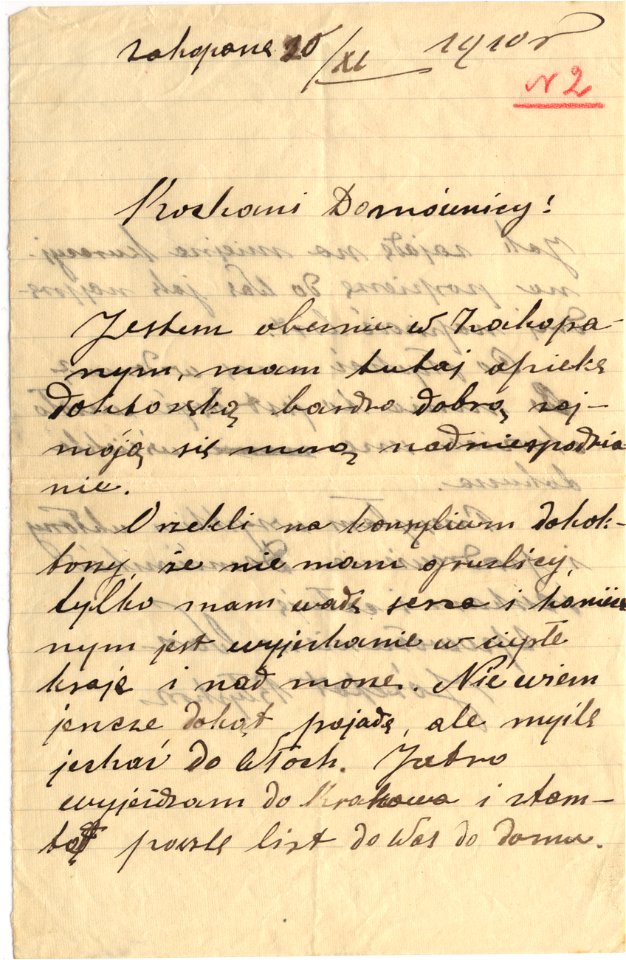 Zakopane 20/XI 1910r
N 2
Kochani Domównicy!
Jestem obecnie w Zakopa-
nym, mam tutaj opiekę
doktorską bardzo dobrą zaj-
mują się mną nadniespodzia
nie.
Orzekli na konsylium dokok-
torzy, że nie mam gruzlicy,
tylko mam wadę serca i koniecz
nym jest wyjechanie w ciepłe
kraje i nad morze. Nie wiem
jencze dokąt pojadę, ale myślę
jechać do Włoch. Jutro
wyjeżdzam do Krakowa i stam-
tąt poszlę list do Was do domu.